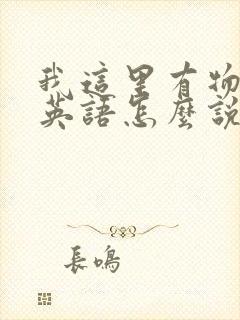 我這里有物
英語怎麼說
長鳴